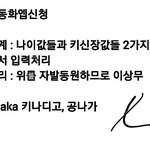 동화엡신청
계 : 나이값들과 키신장값들 2가지
서 입력처리
리 : 위를 자발동원하므로 이상무
aka 키나디고, 공나가